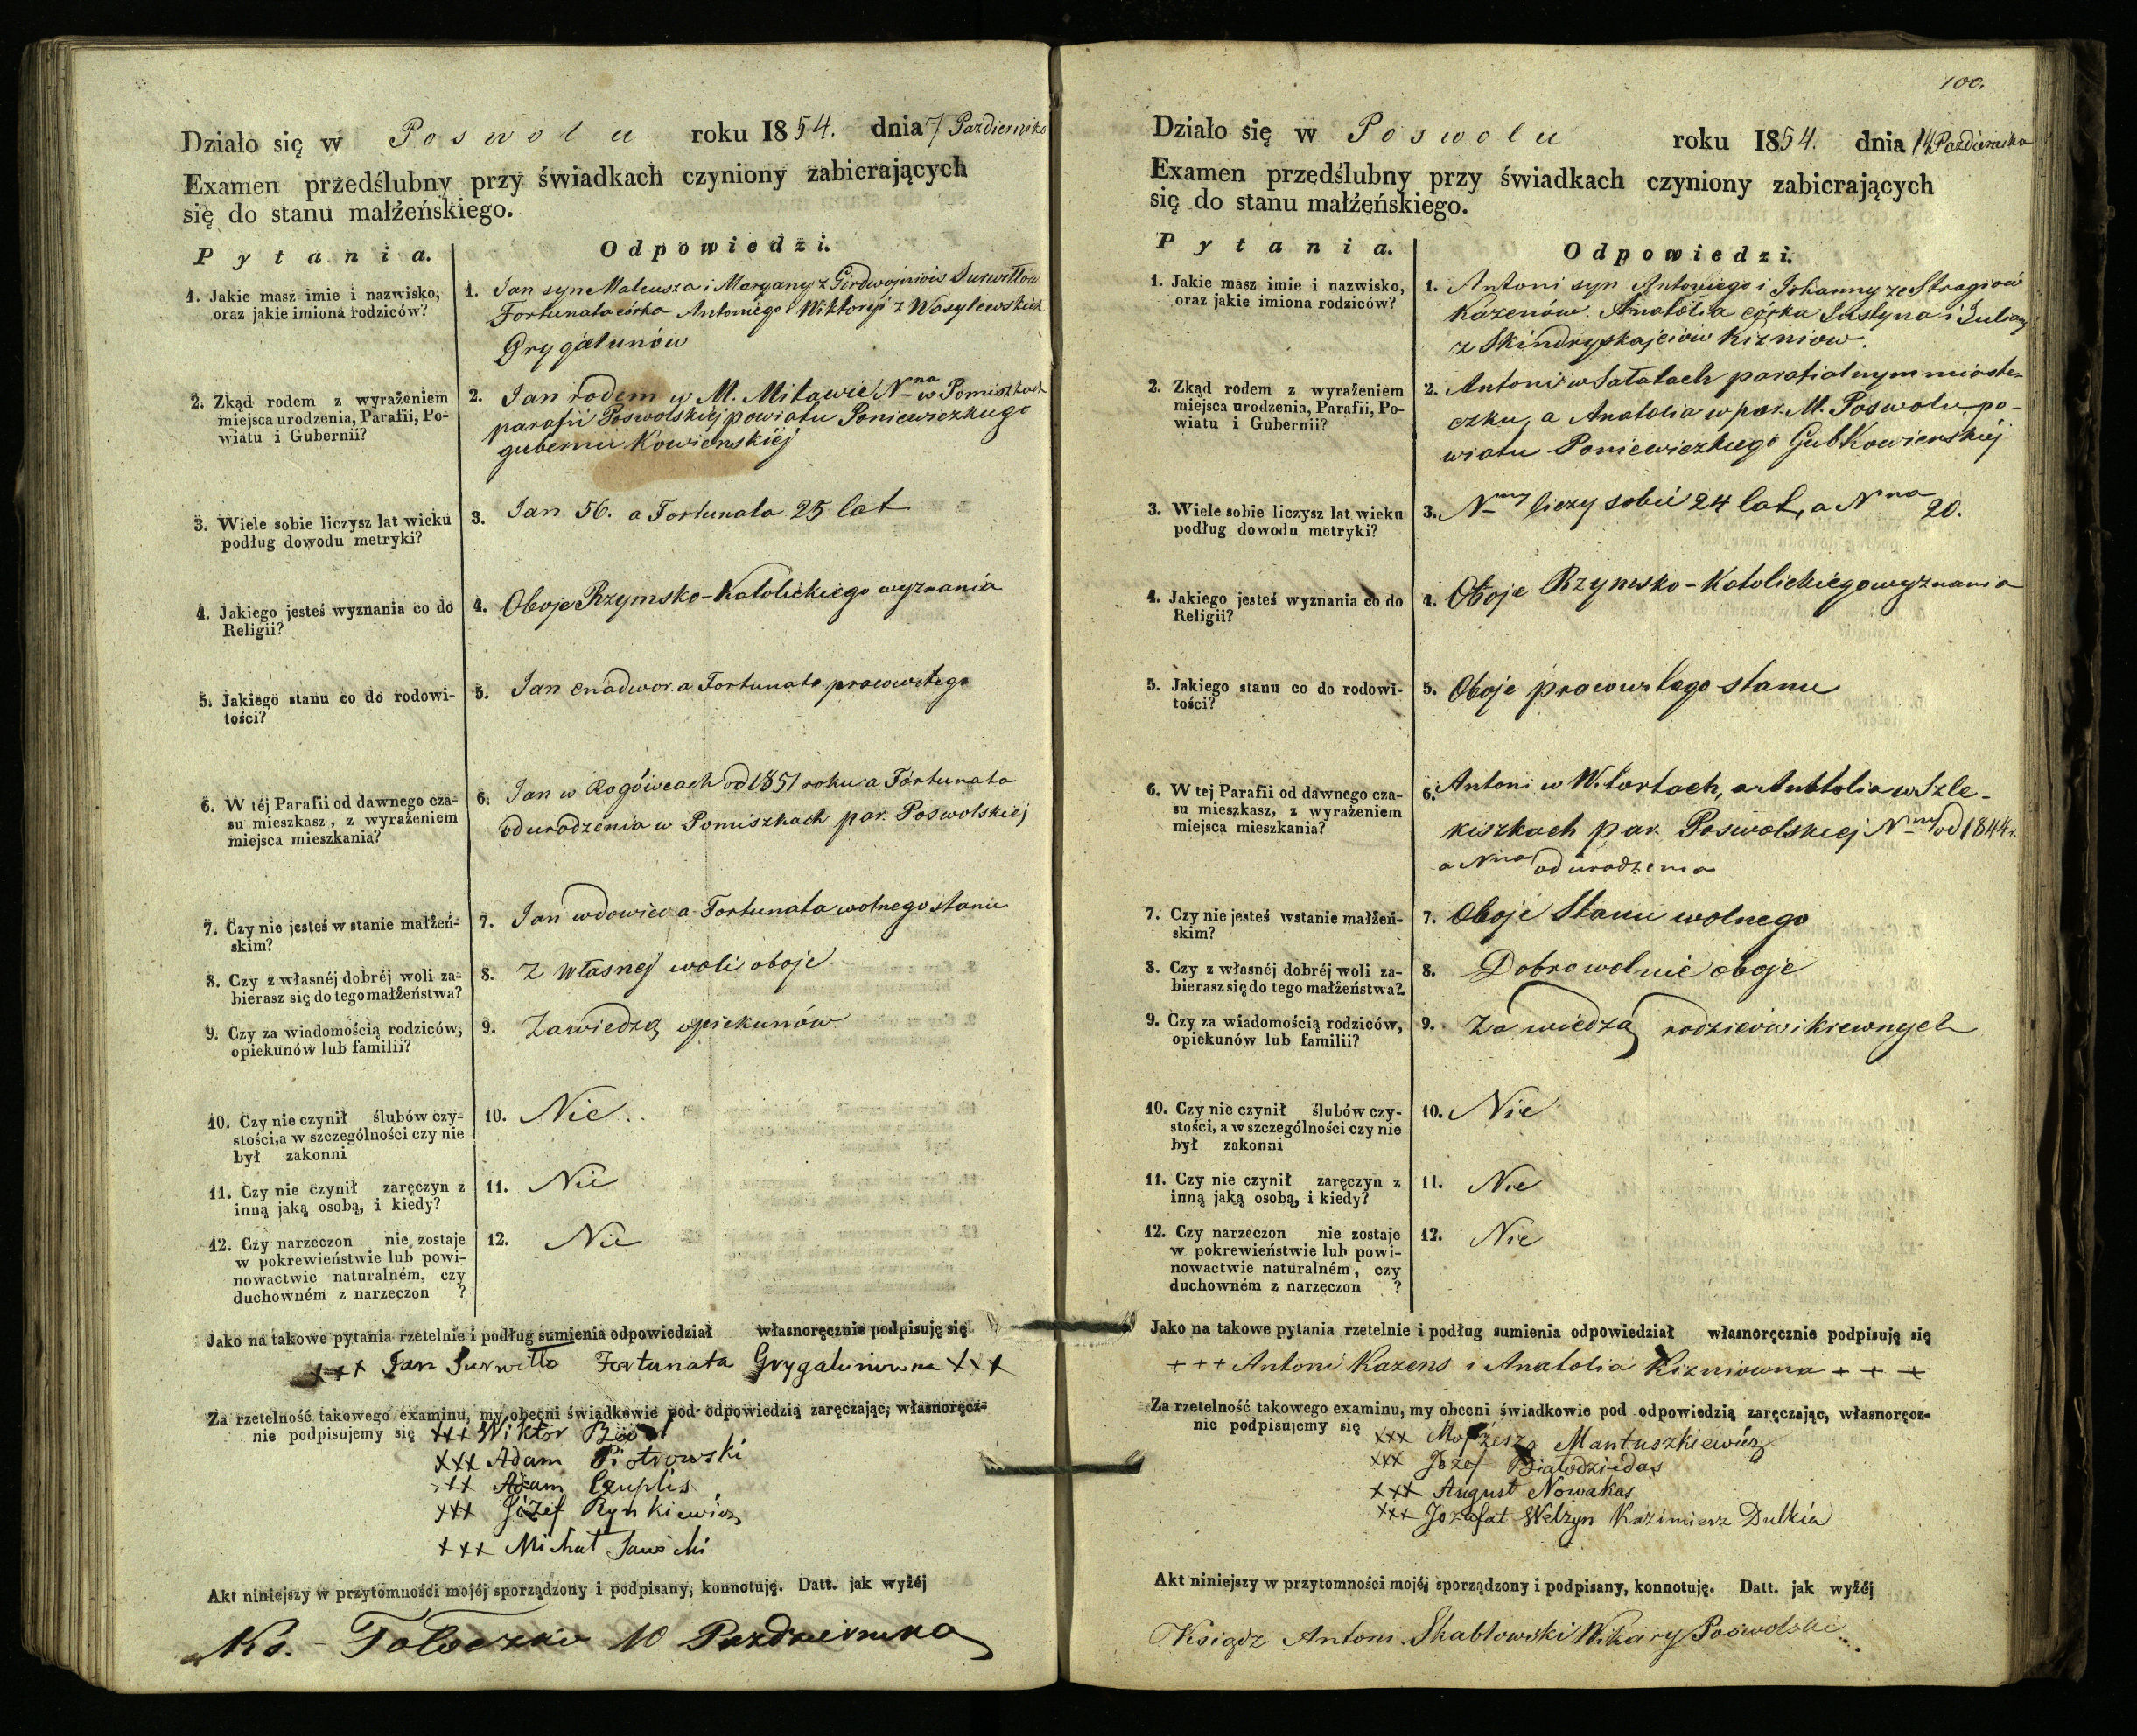 Działo się w Poswolu roku 1854. dnia 7 Pazdziernika
Examen przedślubny przy świadkach czyniony zabierających
się do stanu małżeńskiego.
Pytania.
Odpowiedzi.
1. Jakie masz imie i nazwisko,
oraz jakie imiona rodziców?
1. Jan syn Mateusza i Maryany z Girdwojniów Surwiłłów
Fortunata córka Antoniego i Wiktoryi z Wasylewskich
Grygalunów
2. Zkąd rodem z wyrażeniem
miejsca urodzenia, Parafii, Po-
wiatu i Gubernii?
2. Jan rodem w M. Mitawie N-na w Pomiszkach
parafii Poswolskiej powiatu Poniewiezkiego
gubernii Kowienskiéj
3. Wiele sobie liczysz lat wieku
podług dowodu metryki?
3. Jan 56. a Fortunata 25 lat
4. Jakiego jesteś wyznania co do
Religii?
4. Oboje Rzymsko-Katolickiego wyznania
5. Jakiego stanu co do rodowi-
tości?
5. Jan a Fortunata
6. W téj Parafii od dawnego cza-
su mieszkasz, z wyrażeniem
miejsca mieszkania?
6. Jan w Rogówcach od 1851 roku a Fortunata
od urodzenia w Pomiszkach par. Poswolskiej
7. Czy nie jesteś w stanie małżeń-
skim?
7. Jan wdowiec a Fortunata wolnego stanu
8. Czy z własnéj dobréj woli za-
bierasz się do tego małżeństwa?
8. Z własnej woli oboje
9. Czy za wiadomością rodziców,
opiekunów lub familii?
9. Zawiedzą opiekunów
10. Czy nie czynił ślubów czy-
stości, a w szczególności czy nie
był zakonni
10. Nie
11. Czy nie czynił zaręczyn z
inną jaką osobą, i kiedy?
11. Nie
12. Czy narzeczon nie zostaje
w pokrewieństwie lub powi-
nowactwie naturalném, czy
duchowném z narzeczon ?
12. Nie
Jako na takowe pytania rzetelnie i podług sumienia odpowiedział własnoręcznie podpisuję się
+++ Jan Surwiłło Fortunata Grygalunowna +++
Za rzetelność takowego examinu, my obecni świadkowie pod odpowiedzią zaręczając, własnoręcz-
nie podpisujemy się +++ Wiktor
+++ Adam Piotrowski
+++ Adam
+++ Józef Rynkiewicz
+++ Michał
Akt niniejszy w przytomności mojéj sporządzony i podpisany, konnotuję. Datt. jak wyżéj
Ks. Tołoczko 10 Pazdziernika
100.
Działo się w Poswolu roku 1854. dnia 14 Pazdziernika
Examen przedślubny przy świadkach czyniony zabierających
się do stanu małżeńskiego.
Pytania.
Odpowiedzi.
1. Jakie masz imie i nazwisko,
oraz jakie imiona rodziców?
1. Antoni syn Antoniego i Johanny ze Stragiów
Kazenów. Anatolia córka Justyna i
z Skindryskajciów Kizniow.
2. Zkąd rodem z wyrażeniem
miejsca urodzenia, Parafii, Po-
wiatu i Gubernii?
2. Antoni w Sałatach parafialnym miaste-
czku, a Anatolia w par. M. Poswolu po-
wiatu Poniewiezkiego Gub Kowienskiéj
3. Wiele sobie liczysz lat wieku
podług dowodu metryki?
3. N-ny liczy sobie 24 lat, a N-na 20.
4. Jakiego jesteś wyznania co do
Religii?
4. Oboje Rzymsko-Katolickiego wyznania
5. Jakiego stanu co do rodowi-
tości?
5. Oboje stanu
6. W tej Parafii od dawnego cza-
su mieszkasz, z wyrażeniem
miejsca mieszkania?
6. Antoni w Witortach, a Anatolia w Szle-
kiszkach par. Poswolskiej N-ny od 1844 r.
a N-na od urodzenia
7. Czy nie jesteś wstanie małżeń-
skim?
7. Oboje Stanu wolnego
8. Czy z własnéj dobréj woli za-
bierasz się do tego małżeństwa?
8. Dobrowolnie oboje
9. Czy za wiadomością rodziców,
opiekunów lub familii?
9. Za wiedzą rodziców i krewnych
10. Czy nie czynił ślubów czy-
stości, a w szczególności czy nie
był zakonni
10. Nie
11. Czy nie czynił zaręczyn z
inną jaką osobą, i kiedy?
11. Nie
12. Czy narzeczon nie zostaje
w pokrewieństwie lub powi-
nowactwie naturalném, czy
duchowném z narzeczon ?
12. Nie
Jako na takowe pytania rzetelnie i podług sumienia odpowiedział własnoręcznie podpisuję się
+++ Antoni Kazens i Anatolia Kizniowna +++
Za rzetelność takowego examinu, my obecni świadkowie pod odpowiedzią zaręczając, własnoręcz-
nie podpisujemy się +++ Mojzesz Mantuszkiewicz
+++ Józef Białodziedas
+++ August Nowakas
+++ Jozafat Welzyn Kazimierz Dulkia
Akt niniejszy w przytomności mojéj sporządzony i podpisany, konnotuję. Datt. jak wyżéj
Ksiądz Antoni Skabłowski Wikary Poswolski